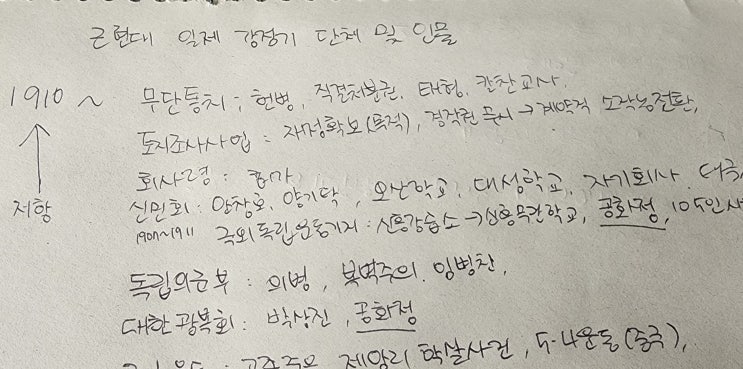 근현대 일제 강점기 단체 및 인물
1910 ~ 무단통치 : 헌병, 즉결처분권, 태형, 칸찬교사.
토지조사사업 : 재정확보(목적), 경작권 무시 → 계약직 소작농전환,
회사령 : 허가
저항
신민회 : 안창호, 양기탁, 오산학교, 대성학교, 자기회사, 태극
1907~1911 국외독립운동기지 : 신흥강습소 → 신흥무관학교, 공화정, 105인사
독립의군부 : 의병, 복벽주의, 임병찬,
대한광복회 : 박상진, 공화정
제암리 학살사건, 5·4운동(중국),